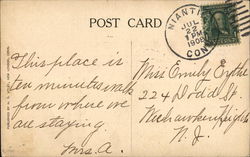 POST CARD
NIANTIC
JUL
25
PM
1908
CONN
This place is
ten minutes walk
from where we
are staying.
Mrs. A.
Miss Emily Eythe
224 Dodd St.
Weehawken Heights
N. J.